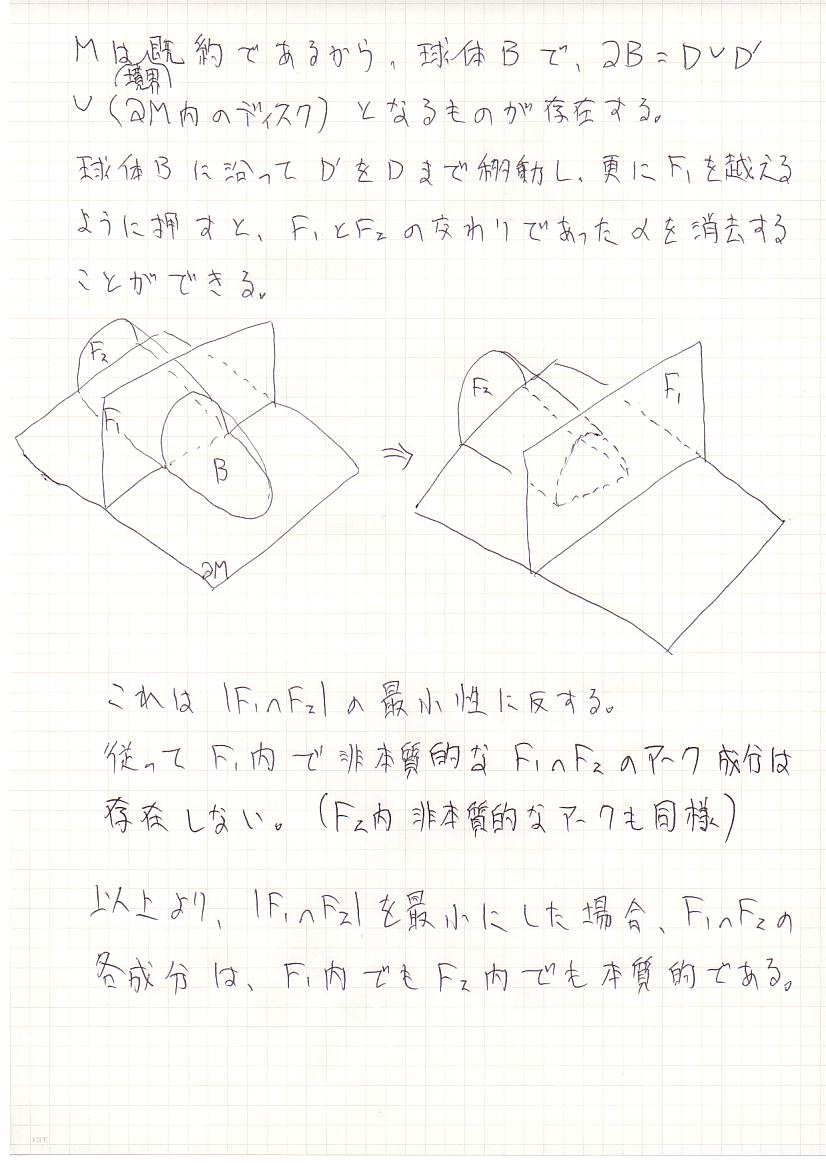 Mは既約であるから、球体Bで、∂B = D∪D′
(境界)
∪(∂M内のディスク)となるものが存在する。
球体Bに沿ってD′をDまで移動し、更にF₁を越える
ように押すと、F₁とF₂の交わりであったαを消去する
ことができる。
F₂
F₁
B
∂M
⇒
F₂
F₁
これは|F₁∩F₂|の最小性に反する。
従ってF₁内で非本質的なF₁∩F₂のアーク成分は
存在しない。(F₂内非本質的なアークも同様)
以上より、|F₁∩F₂|を最小にした場合、F₁∩F₂の
各成分は、F₁内でもF₂内でも本質的である。